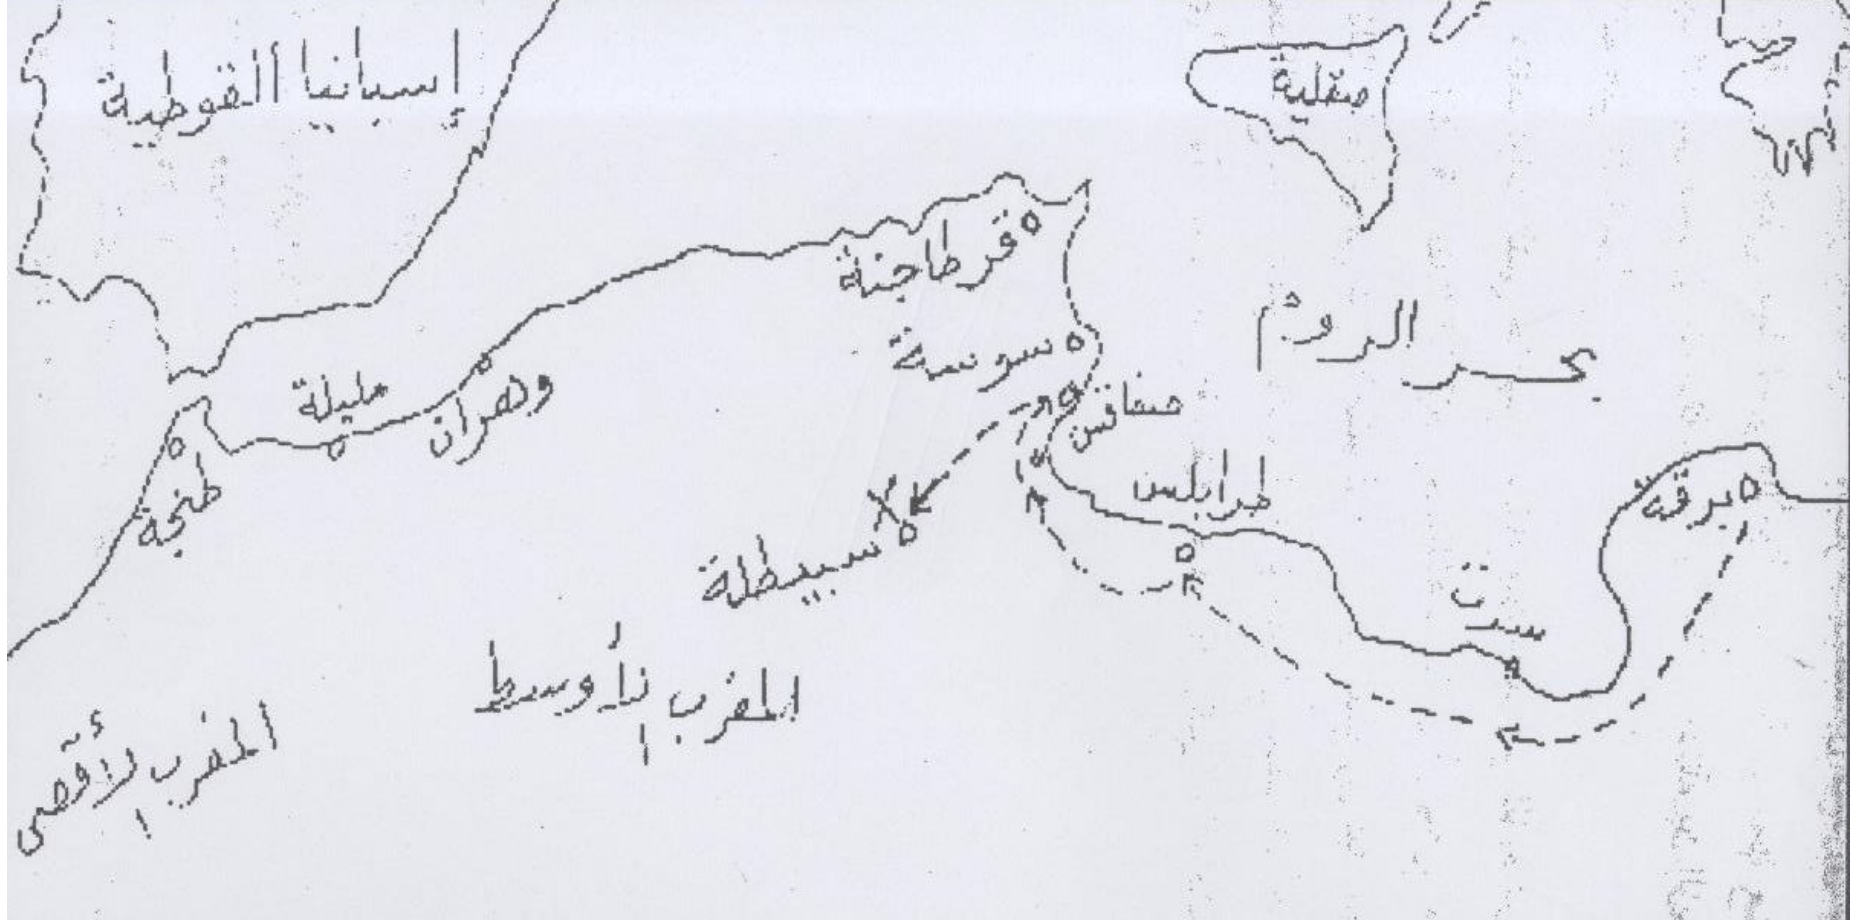 إسبانيا القوطية
صقلية
قرطاجنة
بحر الروم
سوسة
صفاقس
مليلة
وهران
طنجة
طرابلس
برقة
سبيطلة
سرت
المغرب الأوسط
المغرب الأقصى